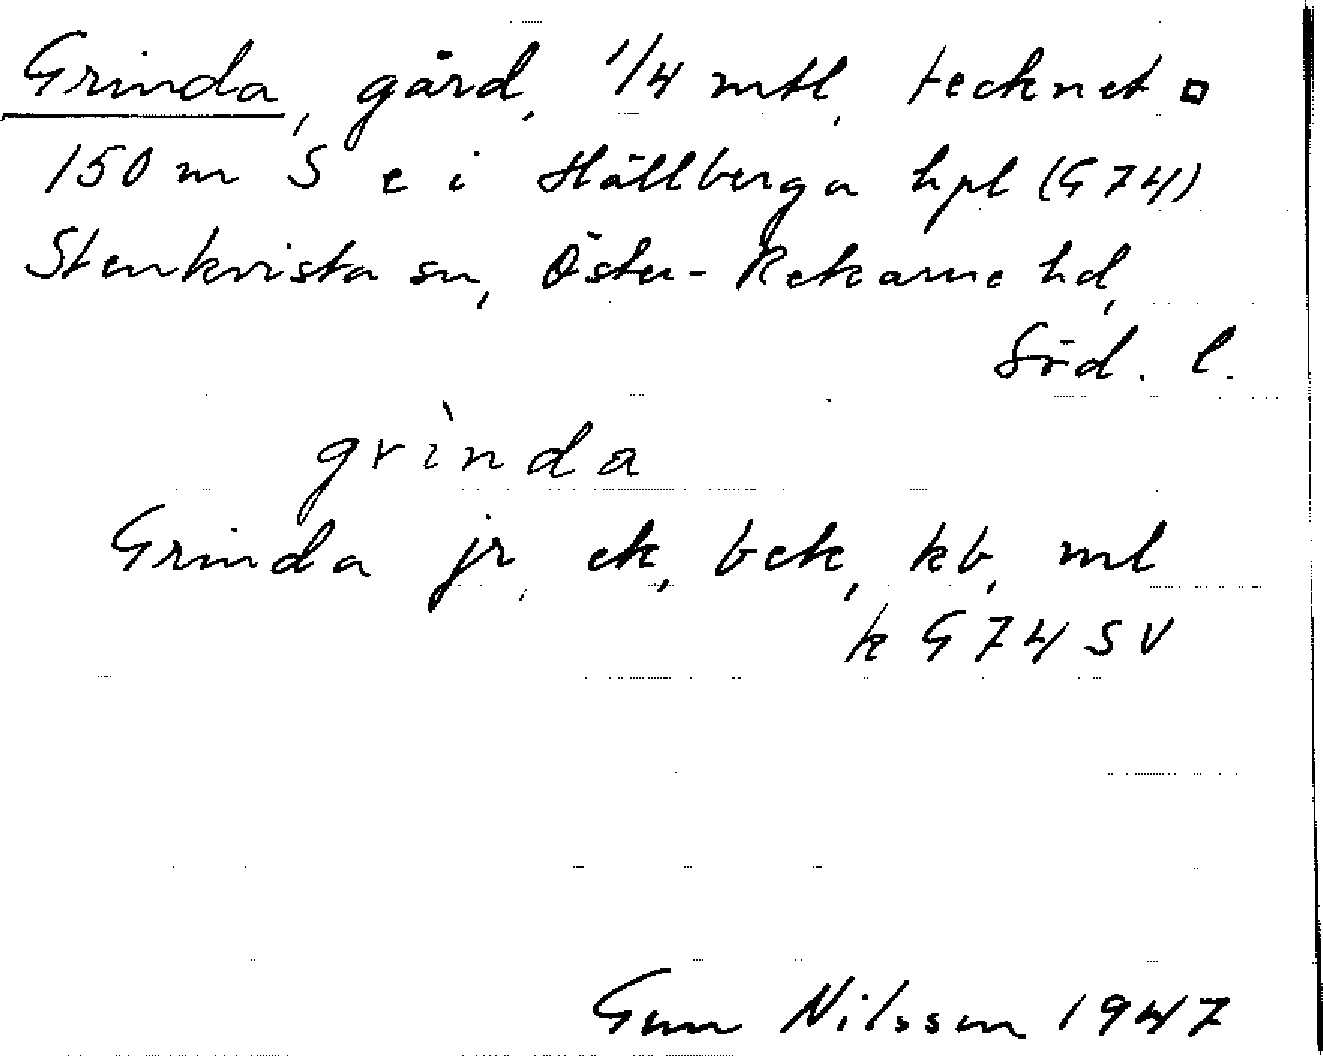 Grinda, gård, 1/4 mtl, tecknet □
150 m S e i Hällberga hpl (G 74)
Stenkvista sn, Öster-Rekarne hd,
Söd. l.
grìnda
Grinda jr, ek, bek, kb, ml
k G 74 SV
Gun Nilsson 1947